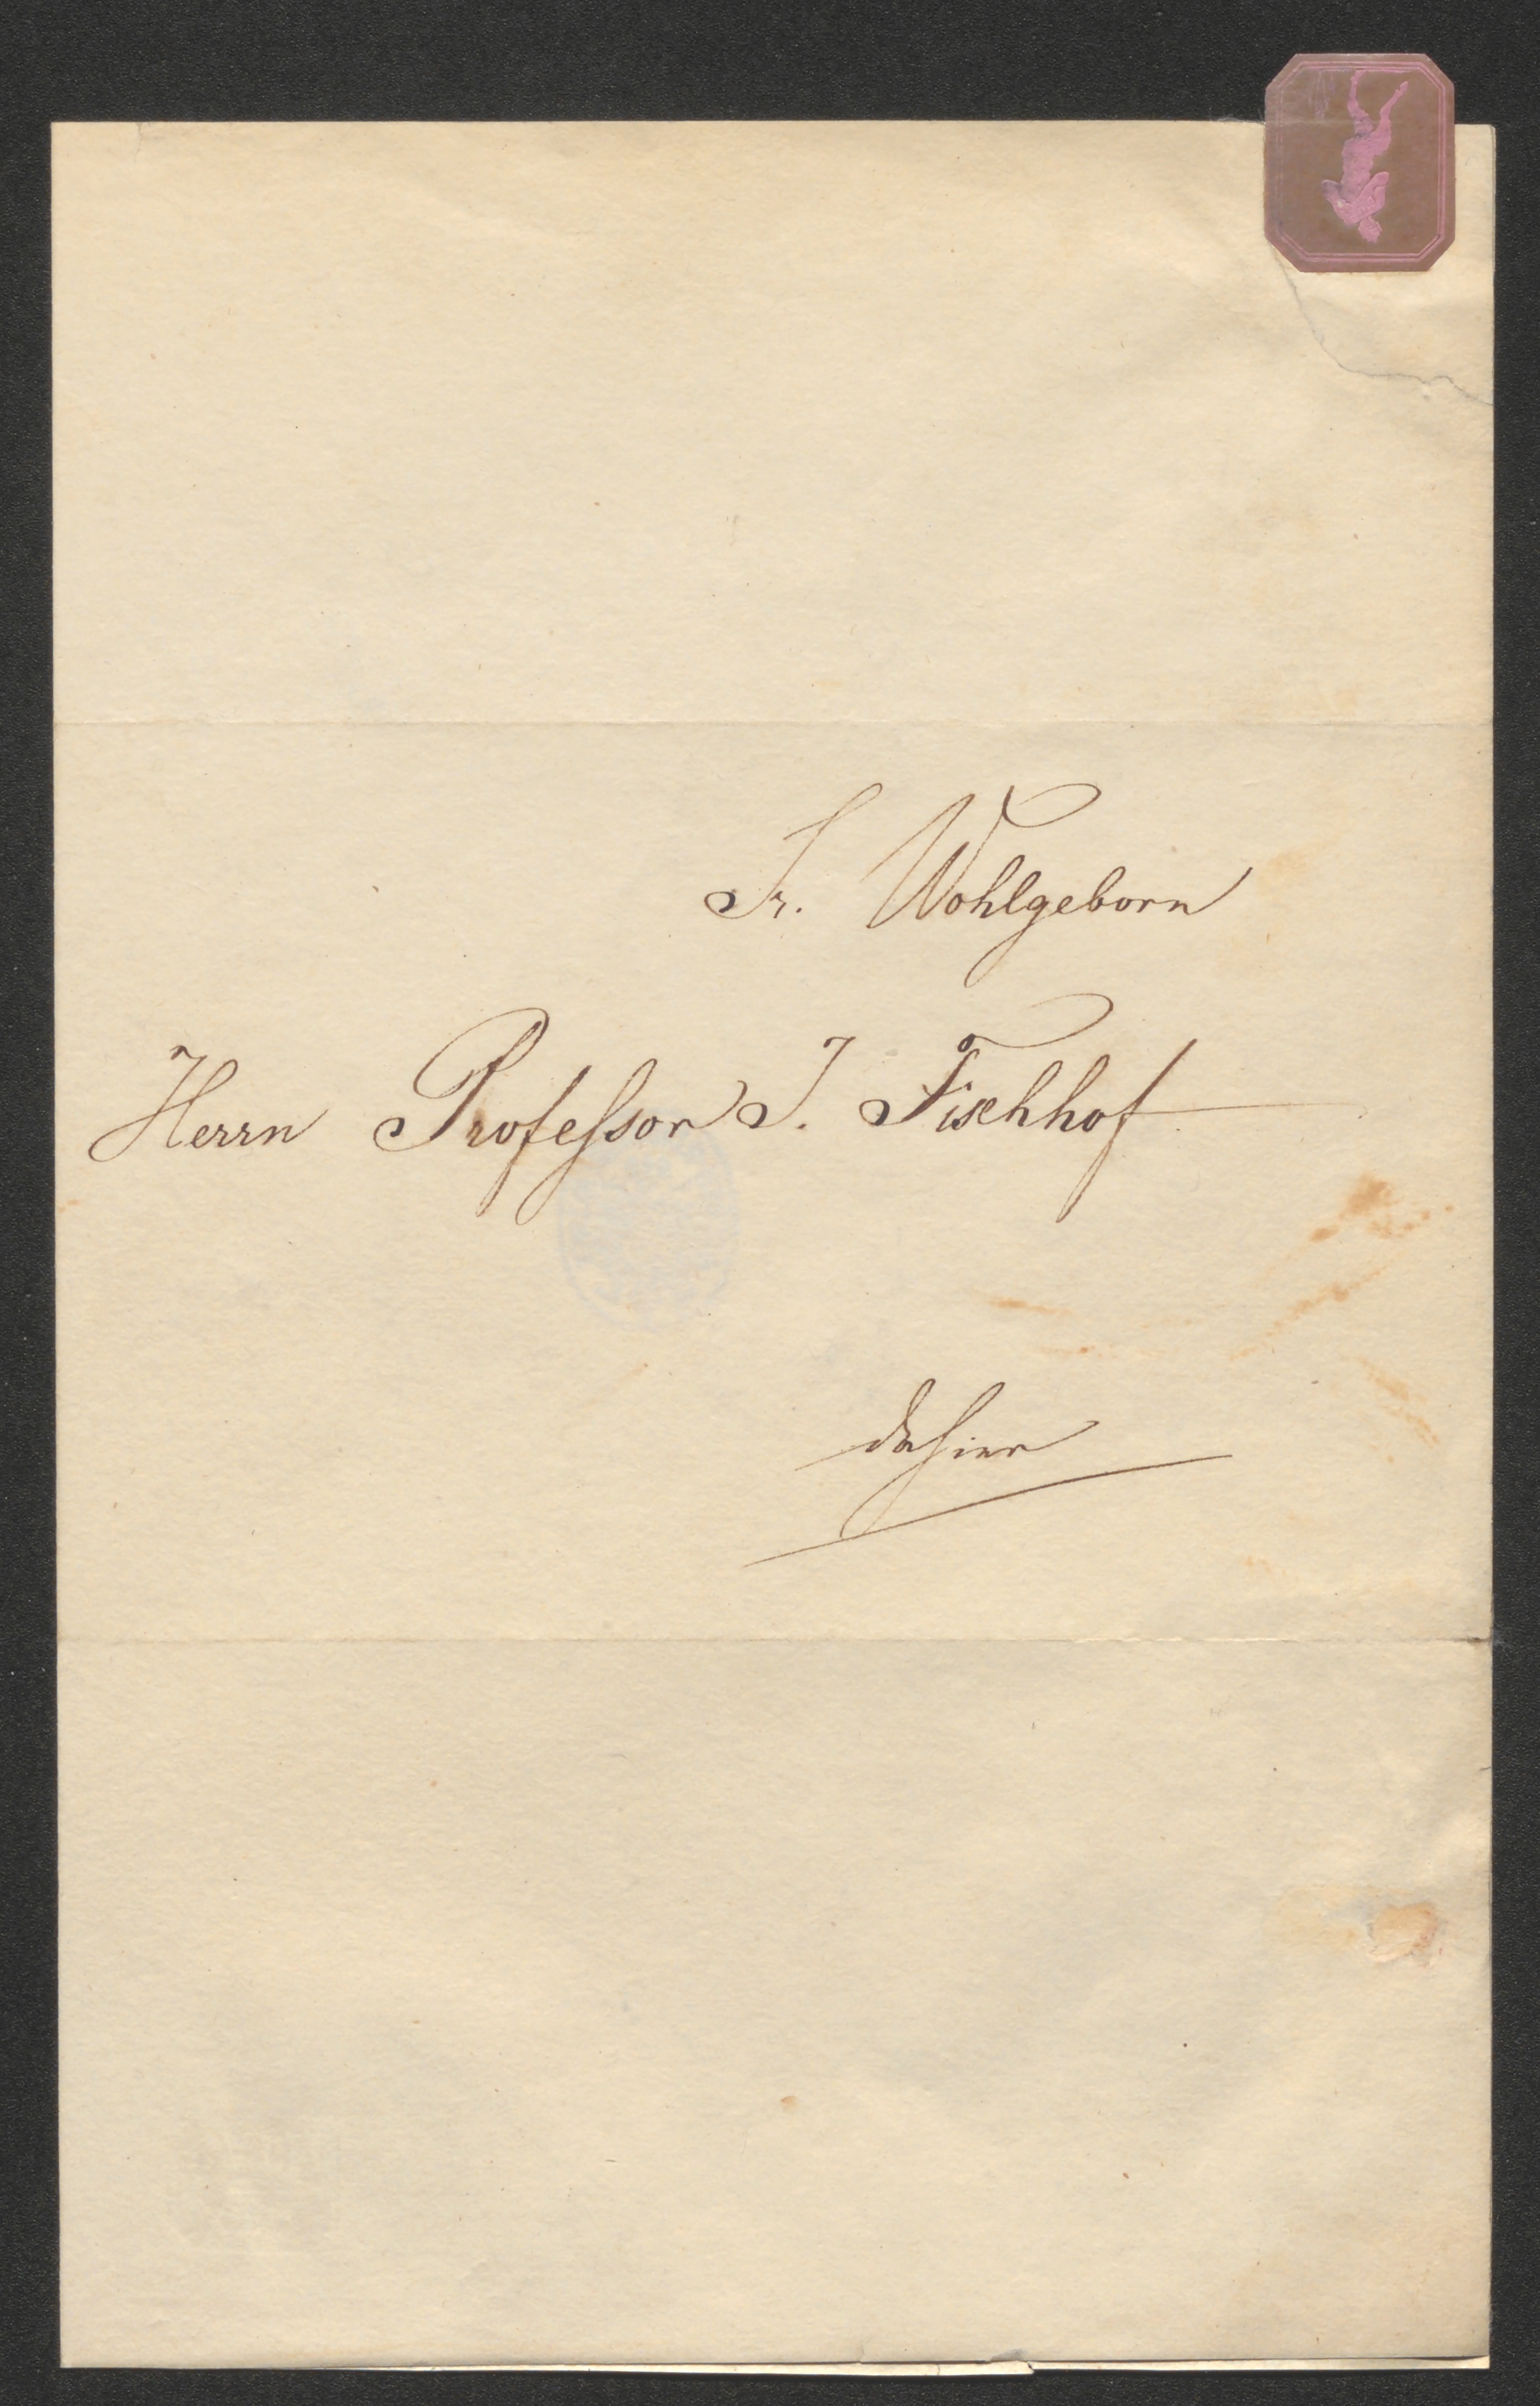 Sr. Wohlgeborn
Herrn Professor J. Fischhof
dahier